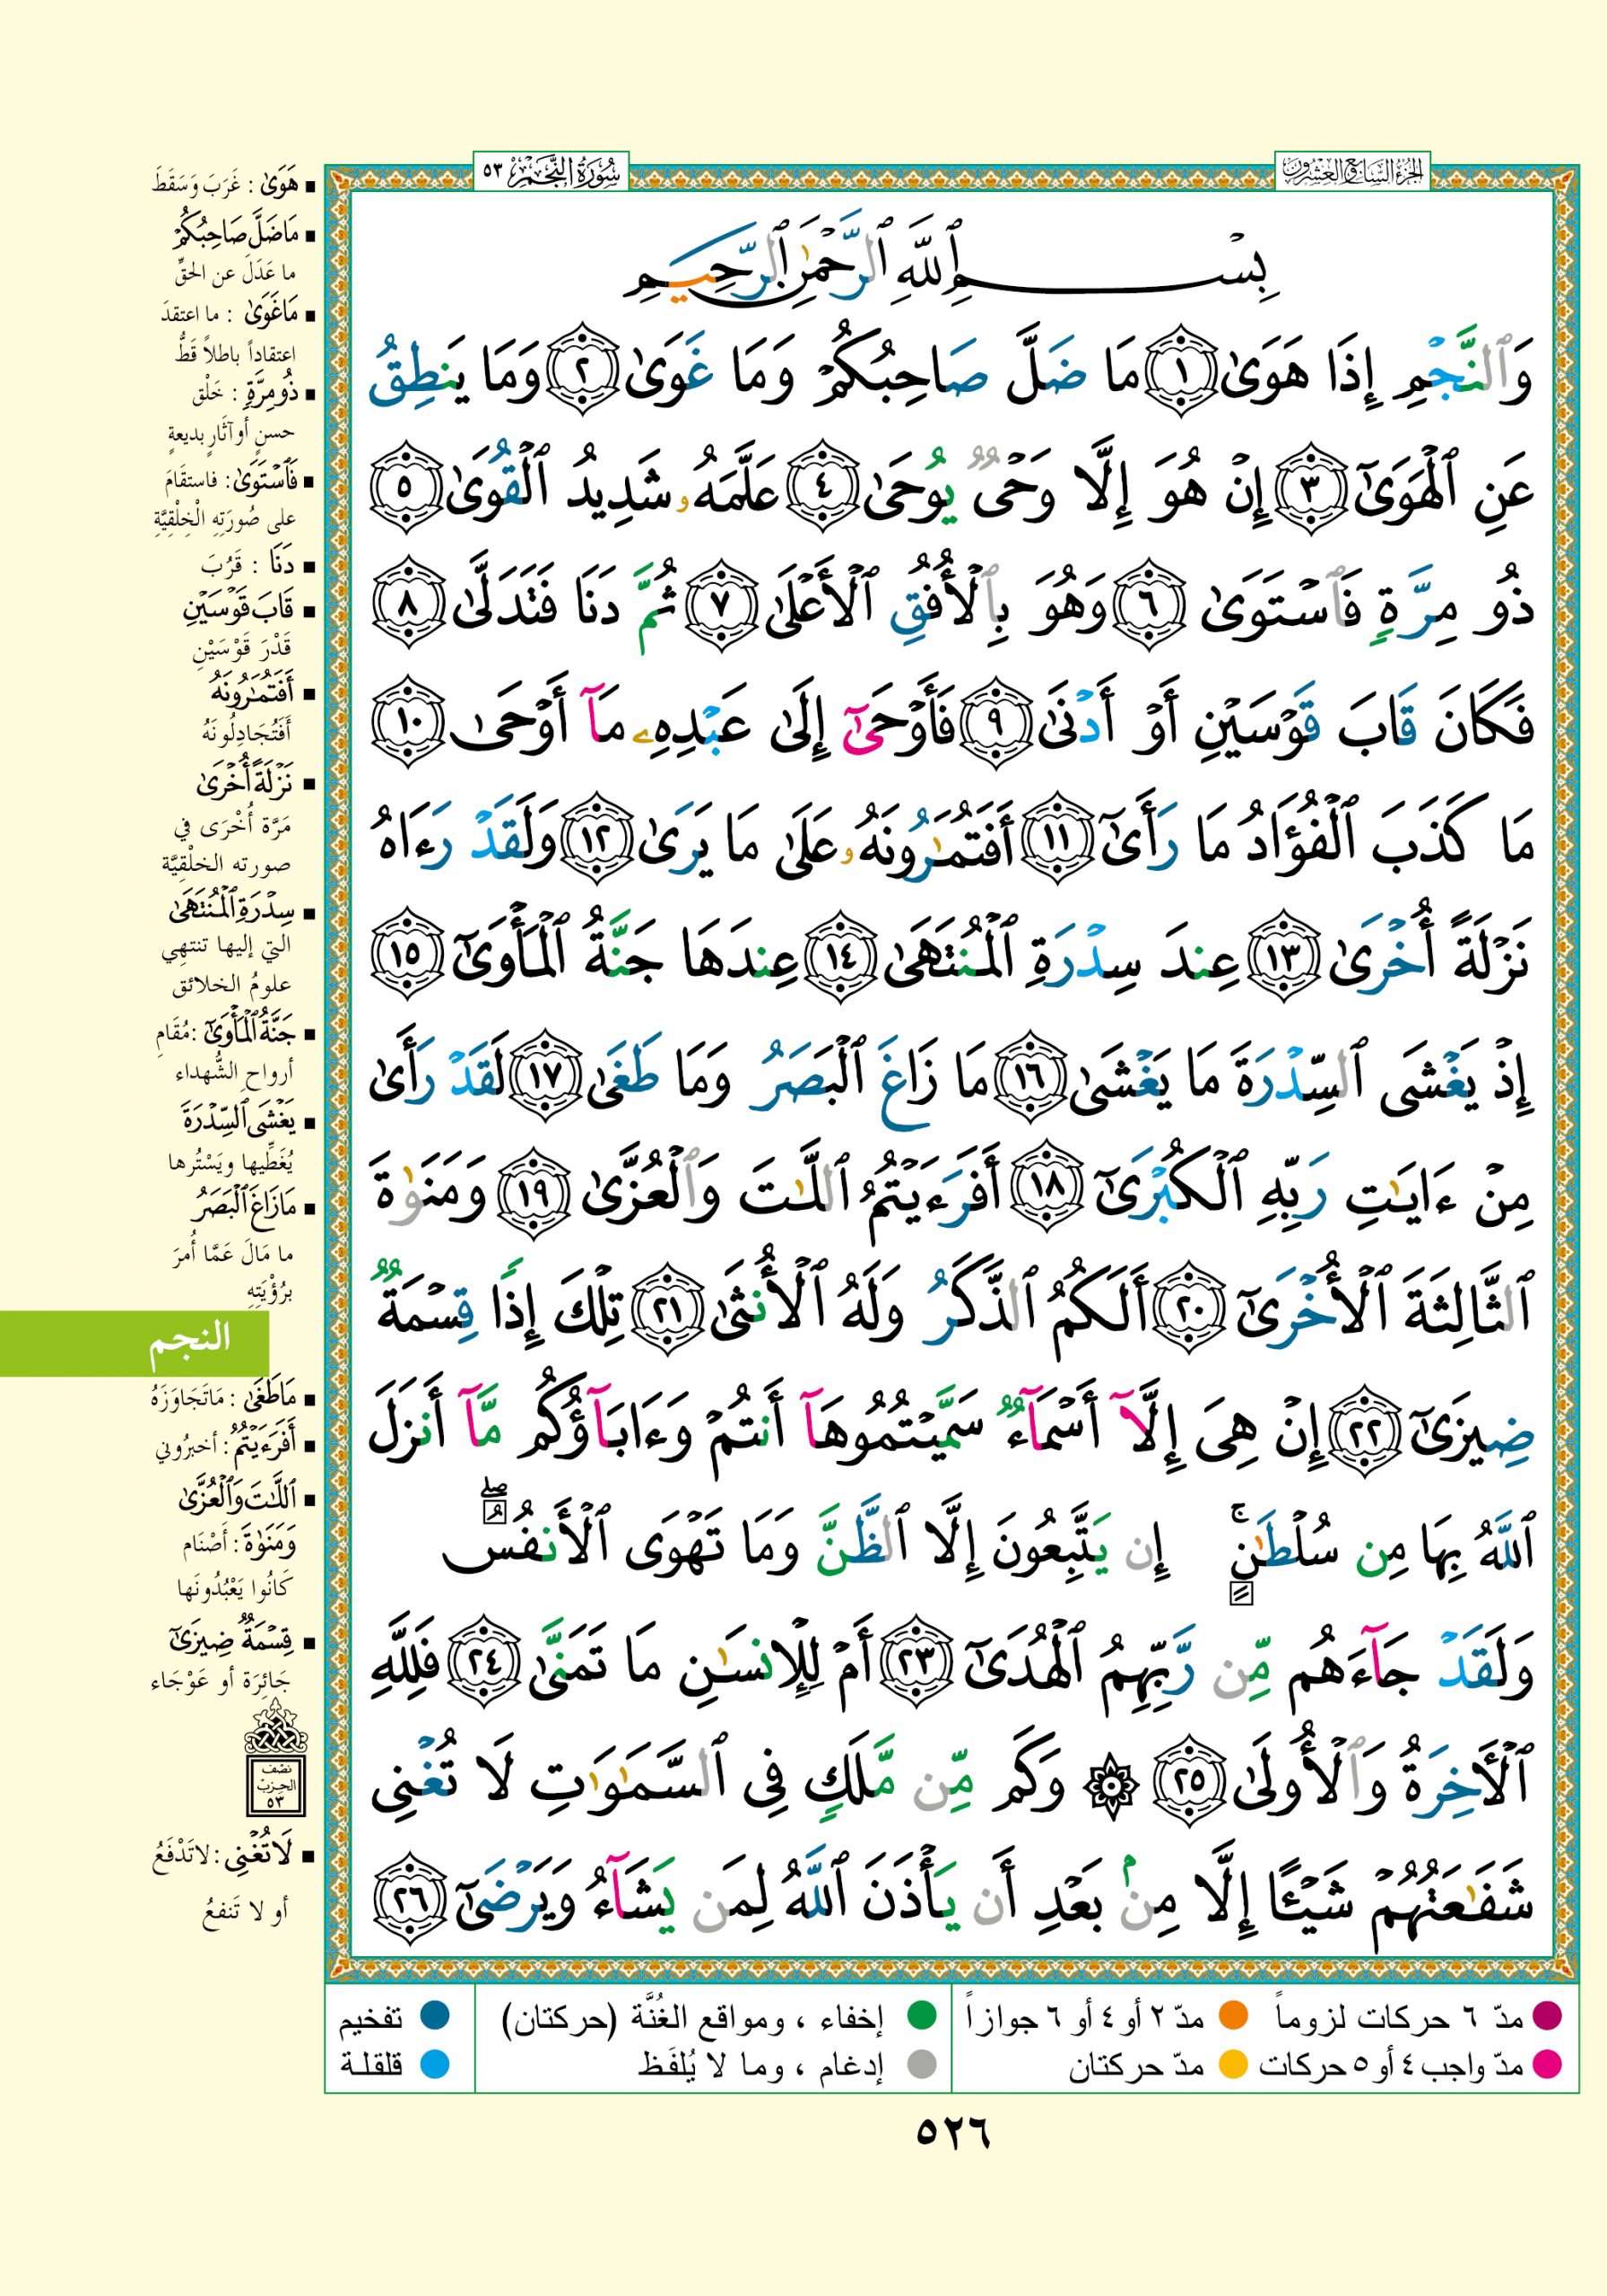 الجزء السابع والعشرون
سورة النجم ٥٣
بِسْمِ ٱللَّهِ ٱلرَّحْمَٰنِ ٱلرَّحِيمِ
وَٱلنَّجْمِ إِذَا هَوَىٰ ١ مَا ضَلَّ صَاحِبُكُمْ وَمَا غَوَىٰ ٢ وَمَا يَنطِقُ
عَنِ ٱلْهَوَىٰٓ ٣ إِنْ هُوَ إِلَّا وَحْىٌ يُوحَىٰ ٤ عَلَّمَهُۥ شَدِيدُ ٱلْقُوَىٰ ٥
ذُو مِرَّةٍ فَٱسْتَوَىٰ ٦ وَهُوَ بِٱلْأُفُقِ ٱلْأَعْلَىٰ ٧ ثُمَّ دَنَا فَتَدَلَّىٰ ٨
فَكَانَ قَابَ قَوْسَيْنِ أَوْ أَدْنَىٰ ٩ فَأَوْحَىٰٓ إِلَىٰ عَبْدِهِۦ مَآ أَوْحَىٰ ١٠
مَا كَذَبَ ٱلْفُؤَادُ مَا رَأَىٰٓ ١١ أَفَتُمَٰرُونَهُۥ عَلَىٰ مَا يَرَىٰ ١٢ وَلَقَدْ رَءَاهُ
نَزْلَةً أُخْرَىٰ ١٣ عِندَ سِدْرَةِ ٱلْمُنتَهَىٰ ١٤ عِندَهَا جَنَّةُ ٱلْمَأْوَىٰٓ ١٥
إِذْ يَغْشَى ٱلسِّدْرَةَ مَا يَغْشَىٰ ١٦ مَا زَاغَ ٱلْبَصَرُ وَمَا طَغَىٰ ١٧ لَقَدْ رَأَىٰ
مِنْ ءَايَٰتِ رَبِّهِ ٱلْكُبْرَىٰٓ ١٨ أَفَرَءَيْتُمُ ٱللَّٰتَ وَٱلْعُزَّىٰ ١٩ وَمَنَوٰةَ
ٱلثَّالِثَةَ ٱلْأُخْرَىٰٓ ٢٠ أَلَكُمُ ٱلذَّكَرُ وَلَهُ ٱلْأُنثَىٰ ٢١ تِلْكَ إِذًا قِسْمَةٌ
ضِيزَىٰٓ ٢٢ إِنْ هِىَ إِلَّآ أَسْمَآءٌ سَمَّيْتُمُوهَآ أَنتُمْ وَءَابَآؤُكُم مَّآ أَنزَلَ
ٱللَّهُ بِهَا مِن سُلْطَٰنٍ ۚ إِن يَتَّبِعُونَ إِلَّا ٱلظَّنَّ وَمَا تَهْوَى ٱلْأَنفُسُ ۖ
وَلَقَدْ جَآءَهُم مِّن رَّبِّهِمُ ٱلْهُدَىٰٓ ٢٣ أَمْ لِلْإِنسَٰنِ مَا تَمَنَّىٰ ٢٤ فَلِلَّهِ
ٱلْءَاخِرَةُ وَٱلْأُولَىٰ ٢٥ ۞ وَكَم مِّن مَّلَكٍ فِى ٱلسَّمَٰوَٰتِ لَا تُغْنِى
شَفَٰعَتُهُمْ شَيْـًٔا إِلَّا مِنۢ بَعْدِ أَن يَأْذَنَ ٱللَّهُ لِمَن يَشَآءُ وَيَرْضَىٰٓ ٢٦
هَوَىٰ : غَرَبَ وَسَقَطَ
مَا ضَلَّ صَاحِبُكُمْ
ما عَدَلَ عن الحقِّ
مَا غَوَىٰ : ما اعتقدَ
اعتقاداً باطلاً قَطُّ
ذُو مِرَّةٍ : خَلْق
حسنٍ أو آثارٍ بديعةٍ
فَٱسْتَوَىٰ : فاستقَامَ
على صُورَتِهِ الْخِلْقِيَّةِ
دَنَا : قَرُبَ
قَابَ قَوْسَيْنِ
قَدْرَ قَوْسَيْنِ
أَفَتُمَٰرُونَهُ
أَفَتُجَادِلُونَهُ
نَزْلَةً أُخْرَىٰ
مَرَّة أُخْرَى في
صورته الخلْقِيَّة
سِدْرَةِ ٱلْمُنتَهَىٰ
التي إليها تنتهِي
علومُ الخلائق
جَنَّةُ ٱلْمَأْوَىٰٓ : مُقَامِ
أرواحِ الشُّهداء
يَغْشَى ٱلسِّدْرَةَ
يُغَطِّيها ويَسْتُرها
مَا زَاغَ ٱلْبَصَرُ
ما مَالَ عَمَّا أُمرَ
برُؤْيَتِهِ
النجم
مَا طَغَىٰ : مَا تَجَاوَزَهُ
أَفَرَءَيْتُمُ : أخبرُوني
ٱللَّٰتَ وَٱلْعُزَّىٰ
وَمَنَوٰةَ : أَصْنَام
كَانُوا يَعْبُدُونَها
قِسْمَةٌ ضِيزَىٰٓ
جَائِرَة أو عَوْجَاء
نصف
الحزب
٥٣
لَا تُغْنِي : لا تَدْفَعُ
أو لا تَنفعُ
مدّ ٦ حركات لزوماً مدّ ٢ أو ٤ أو ٦ جوازاً إخفاء ، ومواقع الغُنَّة (حركتان) تفخيم
مدّ واجب ٤ أو ٥ حركات مدّ حركتان إدغام ، وما لا يُلفَظ قلقلة
٥٢٦